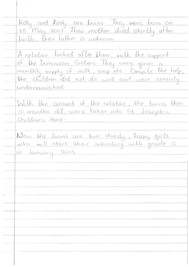 Kelly and Kealy are twins. They were born on
30 May 2001. Their mother died shortly after
birth, their father is unknown.
A relative looked after them, with the support
of the Dominican Sisters. They were given a
monthly supply of milk, soap etc. Despite the help,
the children did not do well and were severely
undernourished.
With the consent of the relative, the twins then
10 months old, were taken into St Joseph's
Children's Home.
Now the twins are two sturdy, happy girls
who will start their schooling with grade 0
in January 2005.